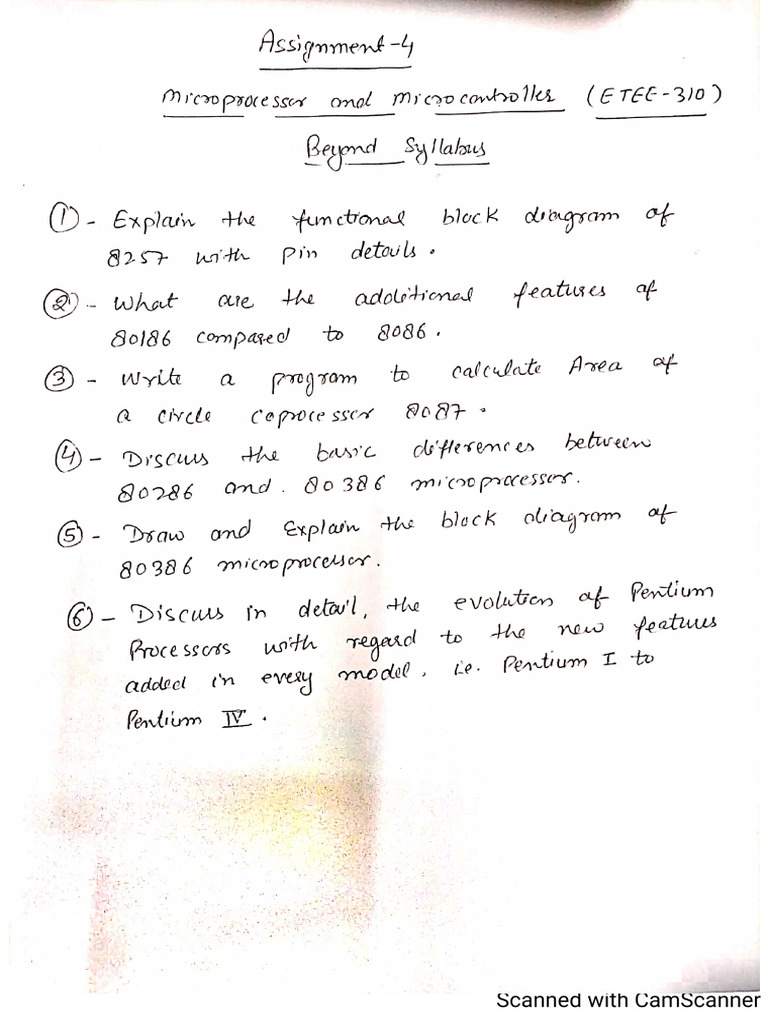 Assignment-4
Microprocessor and Microcontroller (ETEE-310)
Beyond Syllabus
① - Explain the functional block diagram of
8257 with pin details.
② - What are the additional features of
80186 compared to 8086.
③ - Write a program to calculate Area of
a circle coprocessor 8087.
④ - Discuss the basic differences between
80286 and. 80386 microprocessor.
⑤ - Draw and Explain the block diagram of
80386 microprocessor.
⑥ - Discuss in detail, the evolution of Pentium
Processors with regard to the new features
added in every model, i.e. Pentium I to
Pentium IV.
Scanned with CamScanner